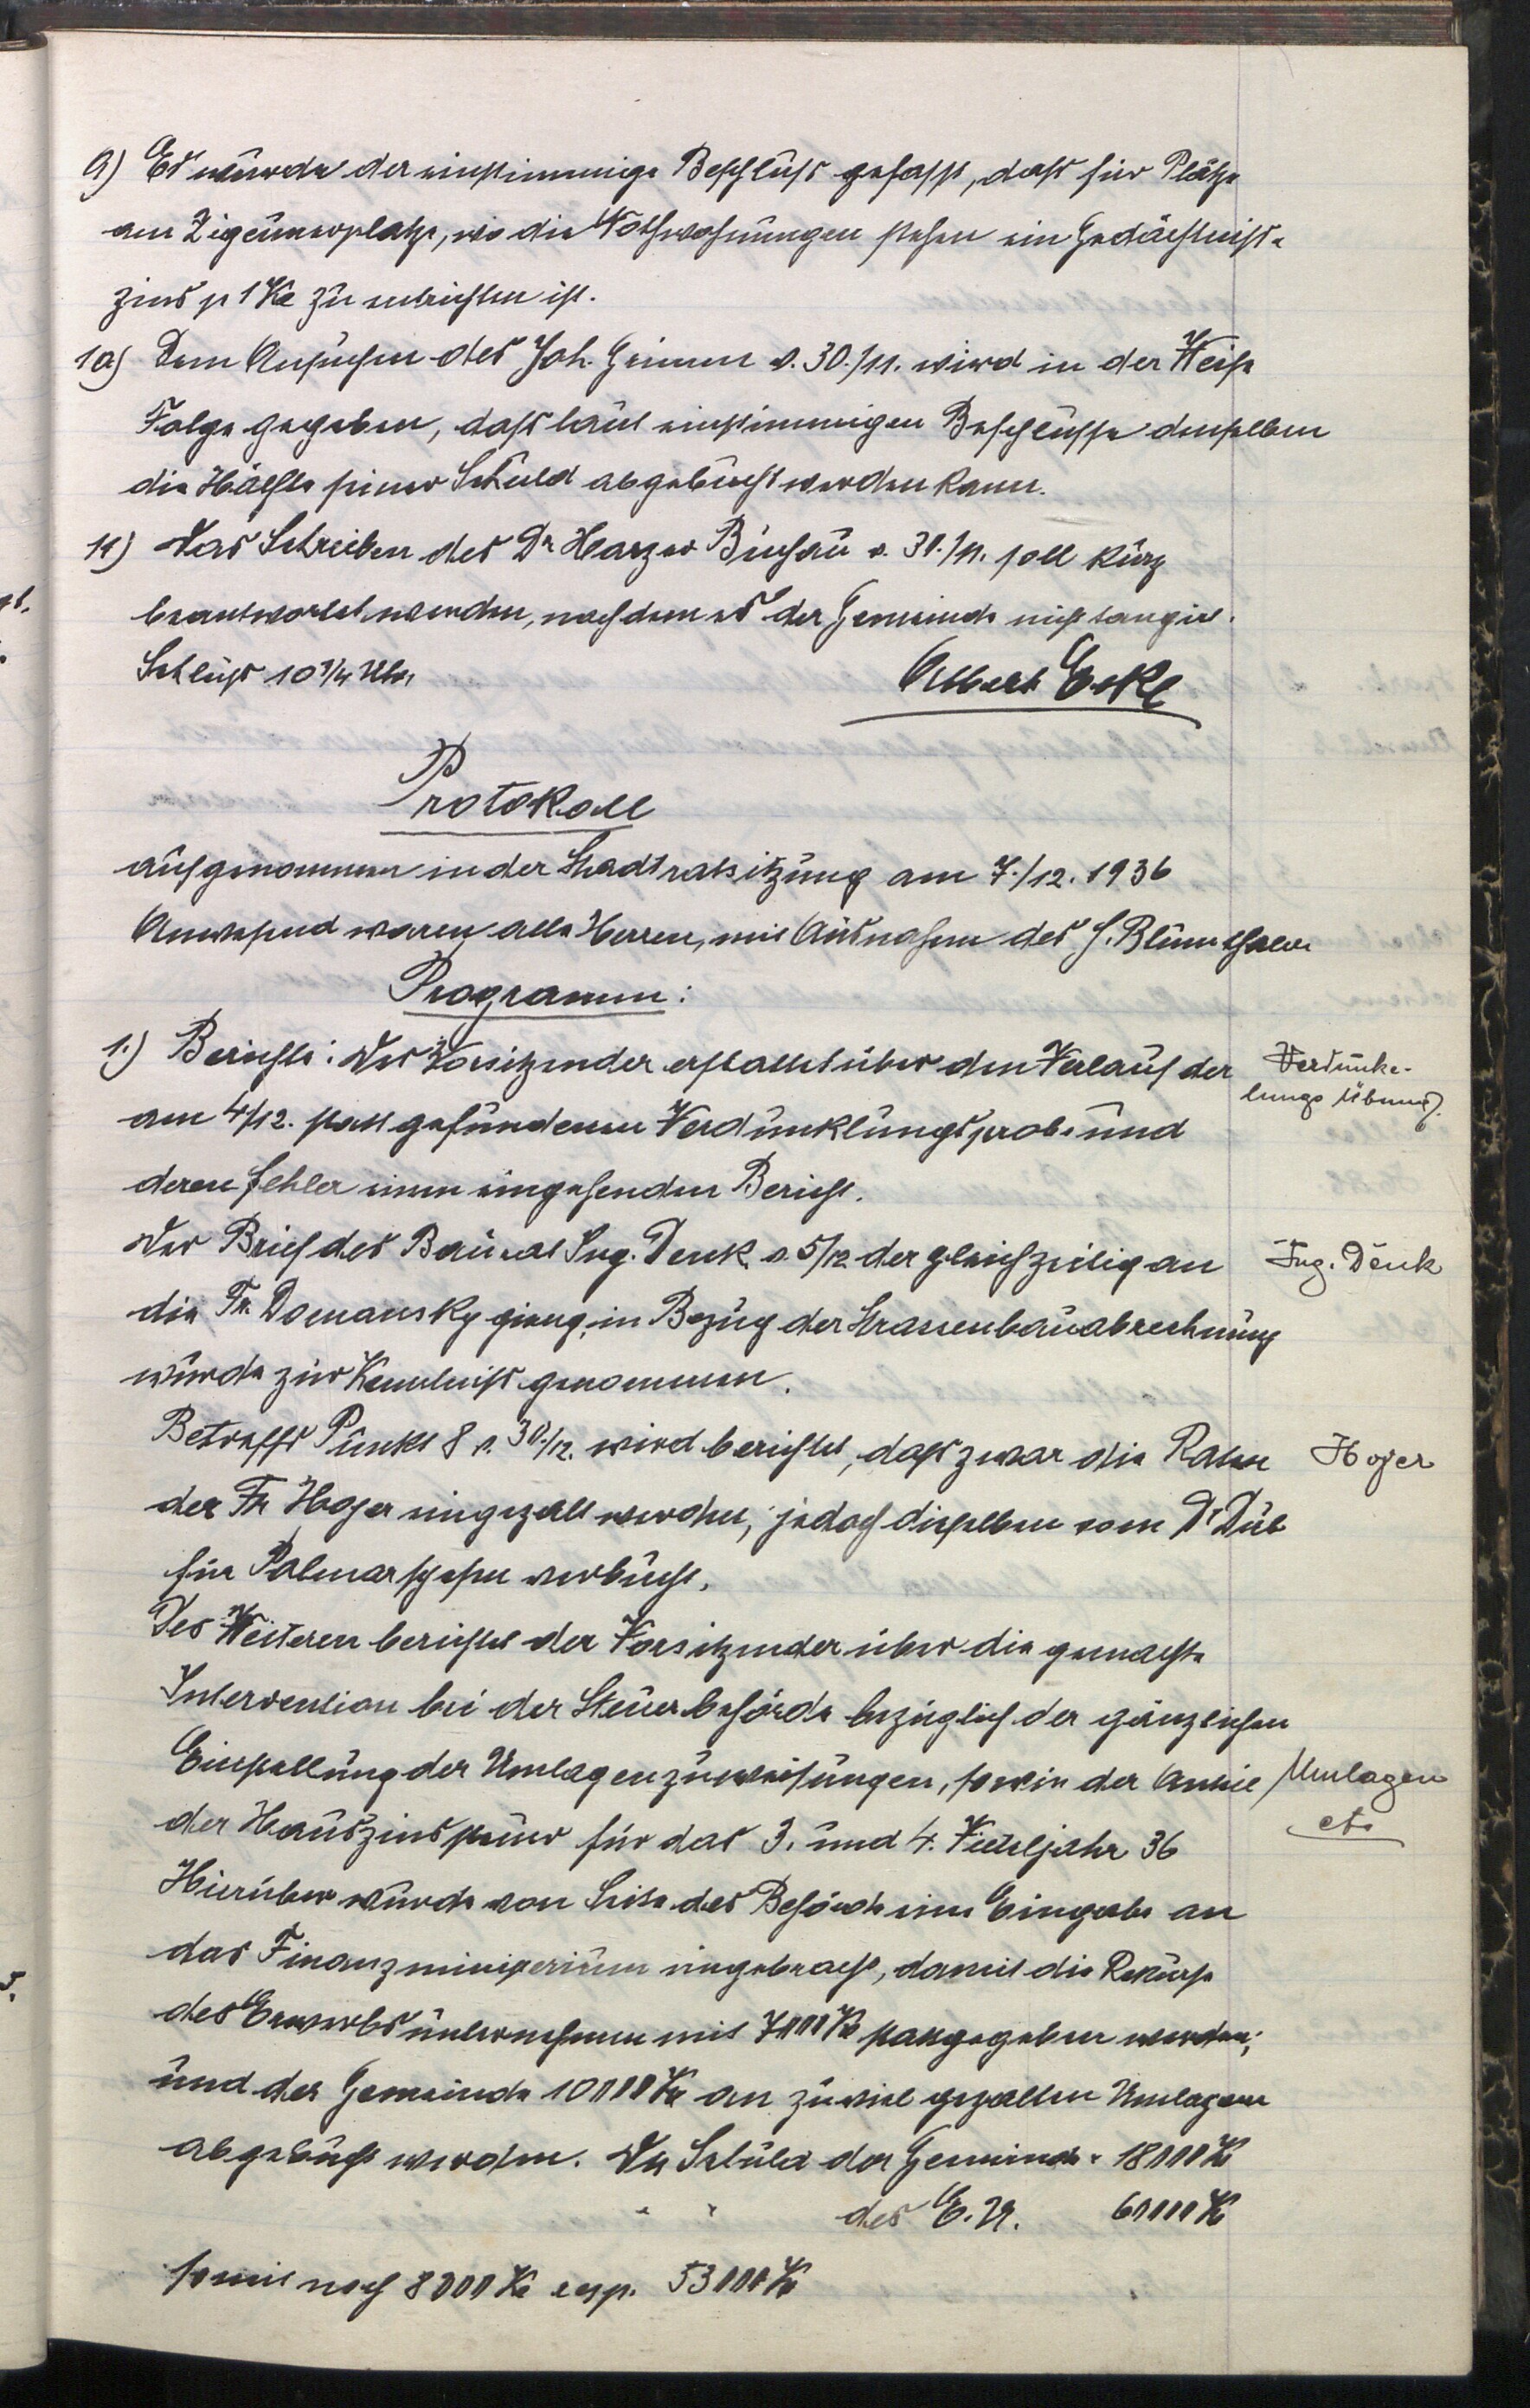 9) Es wurde der einstimmige Beschluss gefasst, dass für Plätze
am Zigeunerplatze, wo die Nothwohnungen stehen ein Gedächtniss-
zins p 1 Kč zu entrichten ist.
10) Dem Ansuchen des Joh. Grimm v. 30./11. wird in der Weise
Folge gegeben, dass laut einstimmigen Beschlusse demselben
die Hälfte seiner Schuld abgebucht werden kann.
11) Das Schreiben des Dr Harzer Buchau v. 30./11. soll kurz
beantwortet werden, nachdem es der Gemeinde nicht tangirt.
Schluss 10 3/4 Uhr
Albert Eckl
Protokoll
aufgenommen in der Stadtratsitzung am 7./12. 1936
Anwesend waren alle Herren, mit Ausnahme des H. Blumthaler
Programm:
1.) Berichte: Der Vorsitzender erstattet über den Verlauf der
Verdunke-
lungs Übung.
am 4/12. statt gefundenen Verdunklungsprobe und
deren Fehler einen eingehenden Bericht.
Der Brief des Baurat Ing. Denk v. 5/12 der gleichzeitig an
Ing. Denk
die Fr. Domansky gieng, in Bezug der Strassenbauabrechnung
wurde zur Kenntniss genommen.
Betreffs Punkt 8 v. 30./12. wird berichtet, dass zwar die Raten
Hojer
der Fr Hojer eingezalt werden, jedoch dieselben vom Dr
für Palmarspesen verbucht.
Des Weiteren berichtet der Vorsitzender über die gemachte
Intervention bei der Steuerbehörde bezüglich der gänzlichen
Einstellung der Umlagenzuweisungen, sowie der
Umlagen
etc
der Hauszinssteuer für das 3. und 4. Vierteljahr 36
Hierüber wurde von Seite des Behörde eine Eingabe an
das Finanzministerium eingebracht, damit die Rekurse
des Erwerbsunternehmen mit 7000 Kč stattgegeben werden;
und der Gemeinde 10000 Kč an zuviel gezalten Umlagen
abgebucht werden. Die Schuld der Gemeinde = 18000 Kč
" " des E. U. 60000 Kč
somit noch 8000 Kč resp. 53000 Kč